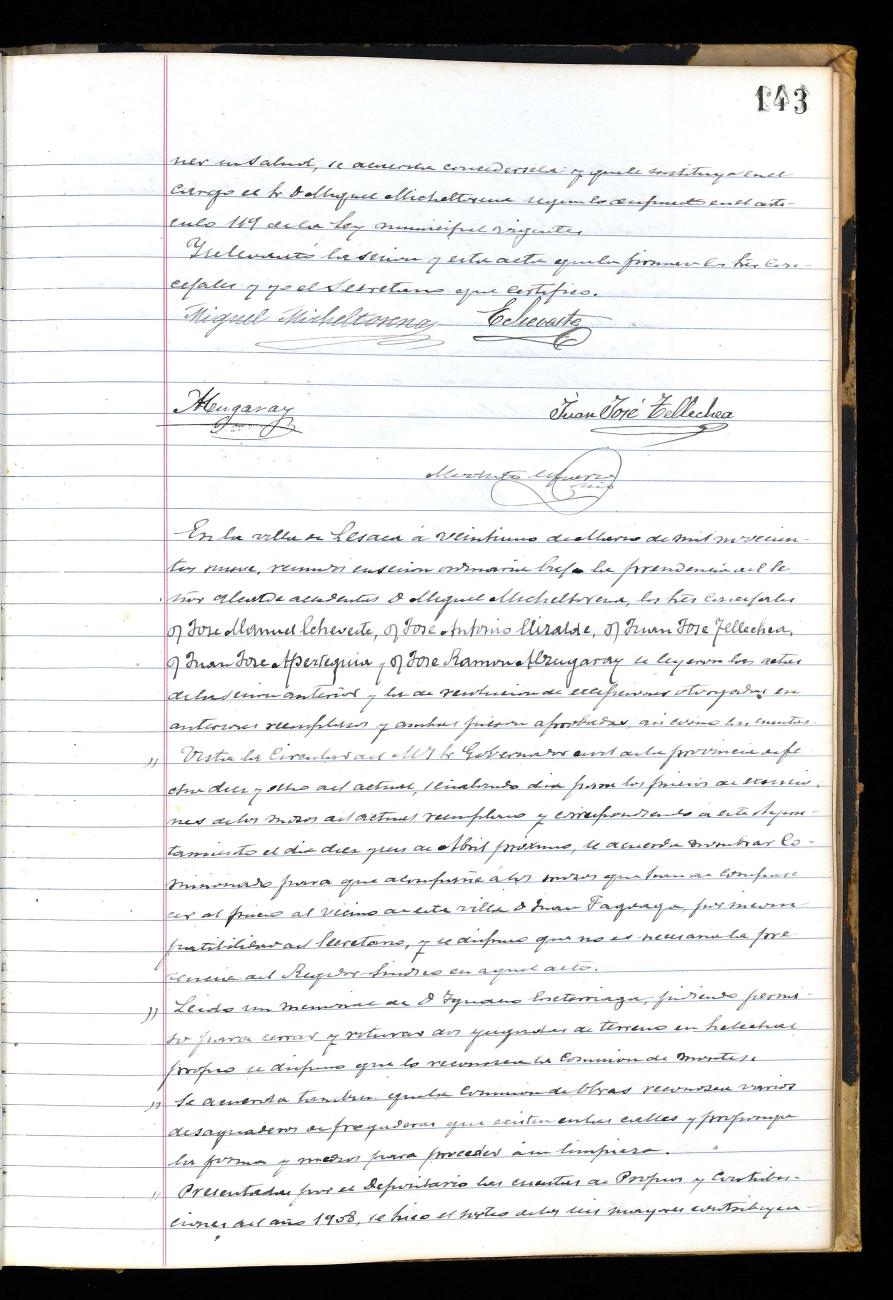 143
ner su salud, se acuerda concedersela y que le sustituya en el
cargo el Sr D Miguel Micheltorena segun lo dispuesto en el arti-
culo 119 de la Ley municipal vigente.
Y se levantó la sesion y esta acta que la firman los Sres Con-
cejales y yo el Secretario que certifico.
Miguel Micheltorena Echeveste
Alzugaray Juan José Tellechea
En la villa de Lesaca á veintiuno de Marzo de mil novecien-
tos nueve, reunidos en sesion ordinaria bajo la presidencia del Se-
ñor Alcalde accidental D Miguel Micheltorena, los Sres Concejales
D Jose Manuel Echeveste, D Jose Antonio Elizalde, D Juan Jose Tellechea,
D Juan Jose Apesteguia y D Jose Ramon Alzugaray se leyeron las actas
de la sesion anterior y la de revision de excepciones otorgadas en
anteriores reemplazos y ambas fueron aprobadas, asi como las cuentas.
" Vista la Circular del M I Sr Gobernador civil de la provincia de fe-
cha diez y ocho del actual, señalando dia para los juicios de exencio-
nes de los mozos del actual reemplazo y correspondiendo a este Ayun-
tamiento el dia diez y seis de Abril próximo, se acuerda nombrar Co-
misionado para que acompañe á los mozos que han de compare-
cer al juicio al vecino de esta villa D Juan Fagoaga, por incom-
patibilidad del Secretario, y se dispuso que no es necesaria la pre-
sencia del Regidor Sindico en aquel acto.
" Leido un memorial de D Ignacio, pidiendo permi-
so para cerrar y roturar dos yugadas de terreno en helechal
propio se dispuso que lo reconozca la Comision de montes.
" Se acuerda tambien que la Comision de Obras reconozca varios
desaguaderos de fregaderas que existen en las calles y proponga
la forma y medios para proceder á su limpieza.
" Presentadas por el Depositario las cuentas de Propios y Contribu-
ciones del año 1908, se hizo el sorteo de los seis mayores contribuyen-